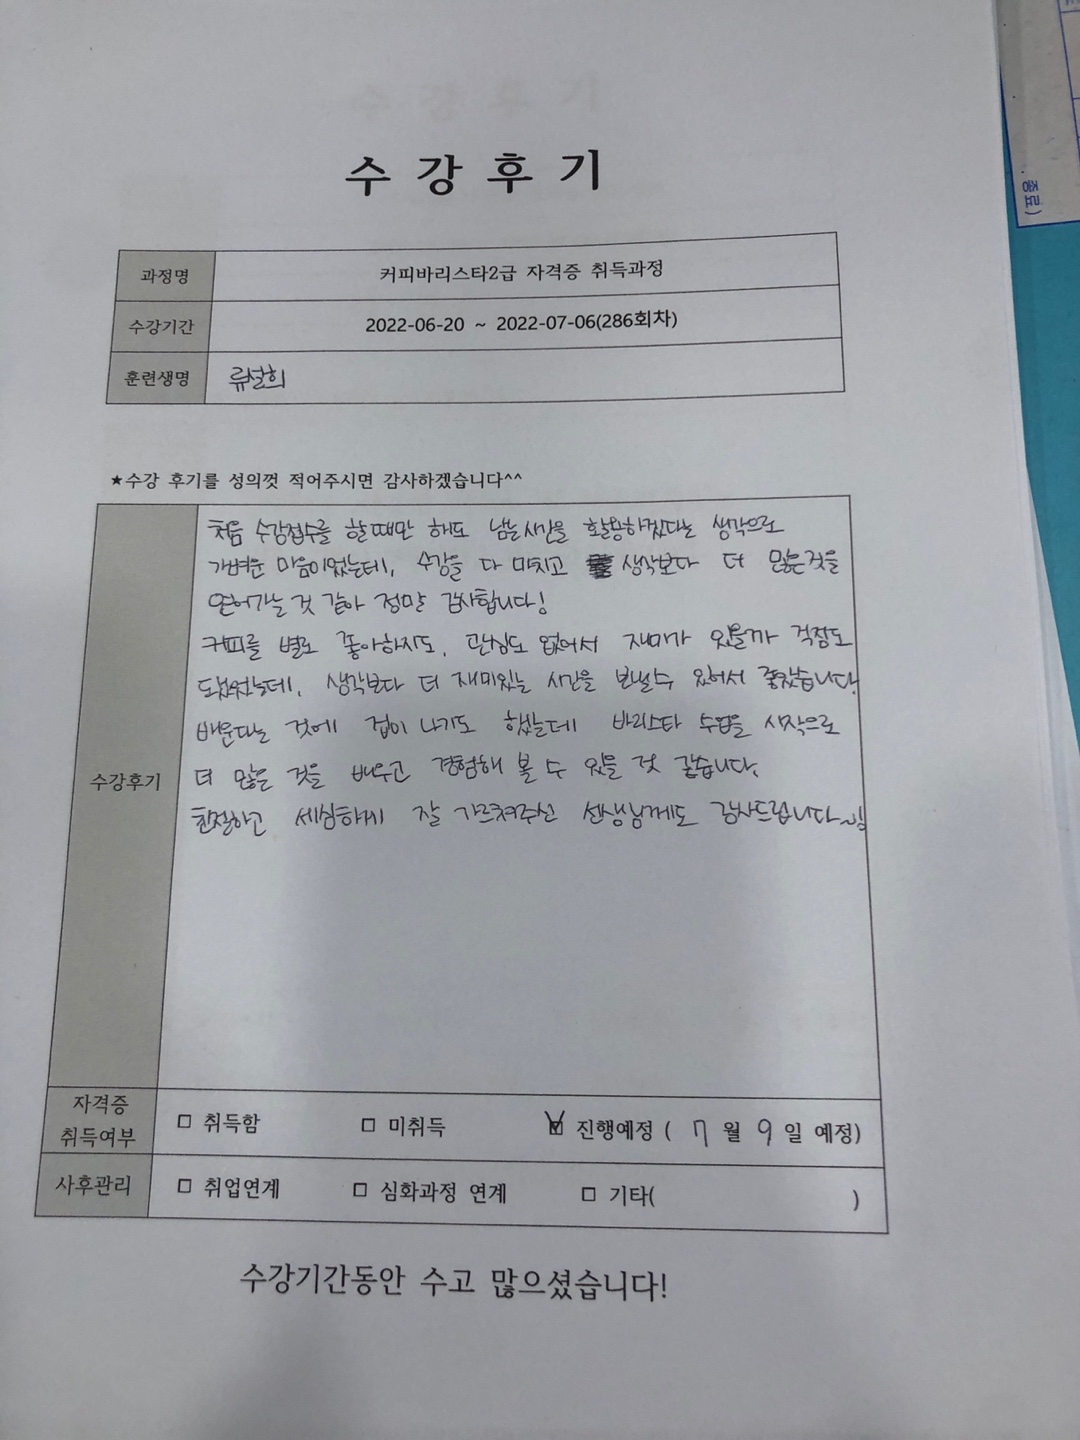 수강후기
과정명 커피바리스타2급 자격증 취득과정
수강기간 2022-06-20 ~ 2022-07-06(286회차)
훈련생명 류설희
★수강 후기를 성의껏 적어주시면 감사하겠습니다^^
수강후기
처음 수강접수를 할때만 해도 남는시간을 활용하겠다는 생각으로
가벼운 마음이었는데, 수강을 다 마치고 생각보다 더 많은것을
얻어가는것 같아 정말 감사합니다!
커피를 별로 좋아하지도, 관심도 없어서 재미가 있을까 걱정도
되었었는데, 생각보다 더 재미있는 시간을 보낼수 있어서 좋았습니다.
배운다는 것에 겁이 나기도 했는데 바리스타 수업을 시작으로
더 많은 것을 배우고 경험해 볼 수 있을 것 같습니다.
친절하고 세심하게 잘 가르쳐주신 선생님께도 감사드립니다~
자격증
취득여부
□ 취득함 □ 미취득 ☑ 진행예정 ( 7 월 9 일 예정)
사후관리 □ 취업연계 □ 심화과정 연계 □ 기타( )
수강기간동안 수고 많으셨습니다!
종료)